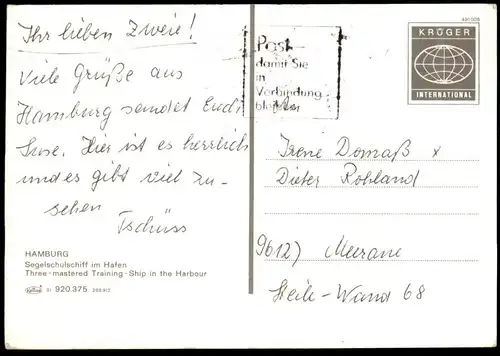 Ihr lieben Zweie!
Viele Grüße aus
Hamburg sendet Euch
Suse. Hier ist es herrlich
und es gibt viel zu-
sehen
Tschüss
HAMBURG
Segelschulschiff im Hafen
Three-mastered Training-Ship in the Harbour
31 920.375
Post
damit Sie
in
Verbindung
bleiben
KRÜGER
INTERNATIONAL
Irene Domaß x
Dieter Rohland
9612) Meerane
Steile-Wand 68